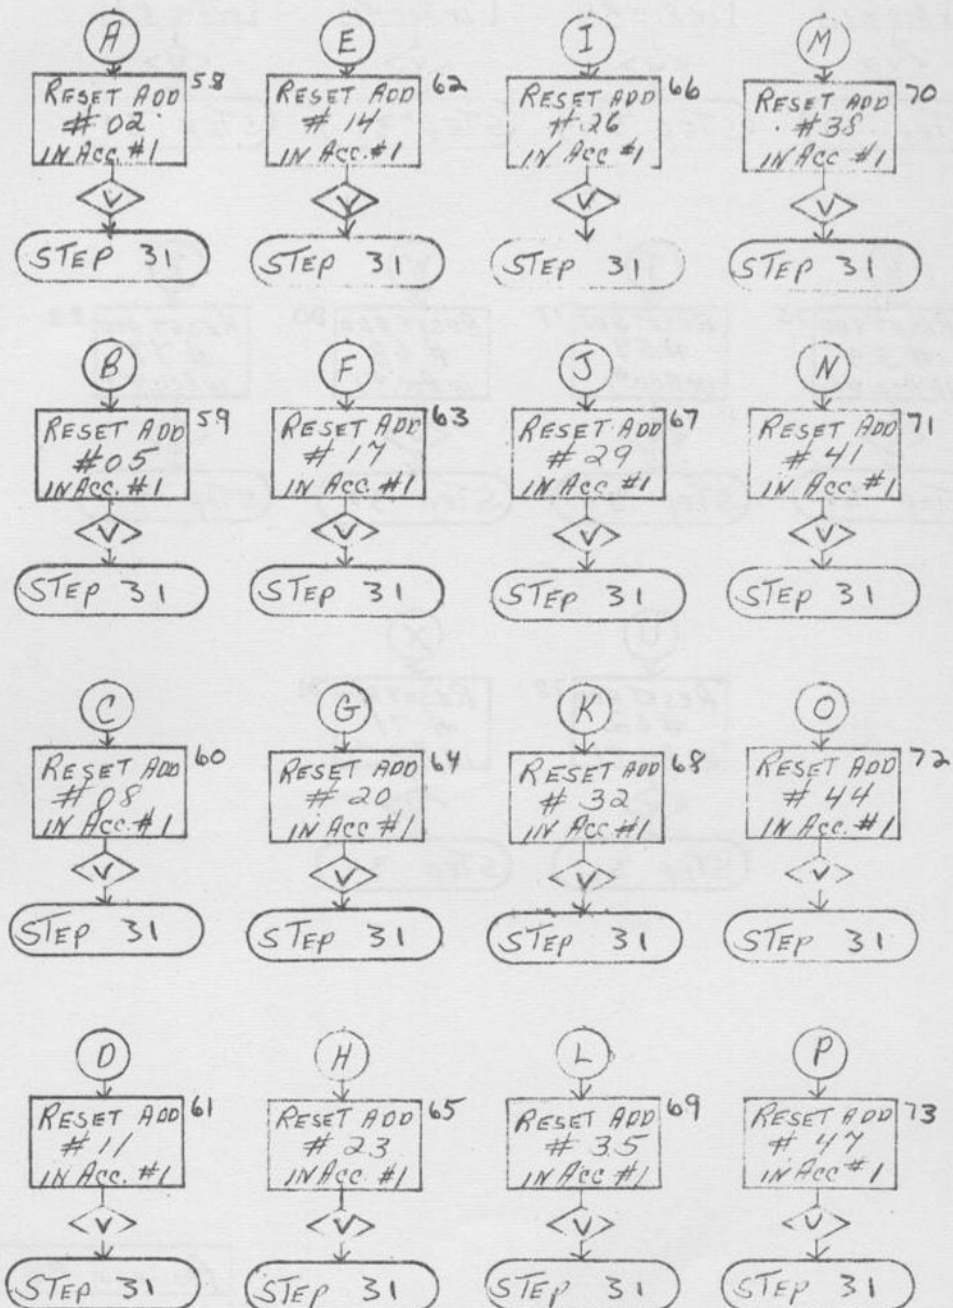 A
58
RESET ADD
# 02
IN Acc. #1
V
STEP 31
E
62
RESET ADD
# 14
IN Acc. #1
V
STEP 31
I
66
RESET ADD
# 26
IN Acc #1
V
STEP 31
M
70
RESET ADD
#38
IN Acc #1
V
STEP 31
B
59
RESET ADD
#05
IN Acc. #1
V
STEP 31
F
63
RESET ADD
# 17
IN Acc. #1
V
STEP 31
J
67
RESET ADD
# 29
IN Acc #1
V
STEP 31
N
71
RESET ADD
# 41
IN Acc #1
V
STEP 31
C
60
RESET ADD
# 08
IN Acc. #1
V
STEP 31
G
64
RESET ADD
# 20
IN Acc #1
V
STEP 31
K
68
RESET ADD
# 32
IN Acc #1
V
STEP 31
O
72
RESET ADD
# 44
IN Acc. #1
V
STEP 31
D
61
RESET ADD
# 11
IN Acc. #1
V
STEP 31
H
65
RESET ADD
# 23
IN Acc. #1
V
STEP 31
L
69
RESET ADD
# 35
IN Acc #1
V
STEP 31
P
73
RESET ADD
# 47
IN Acc # 1
V
STEP 31